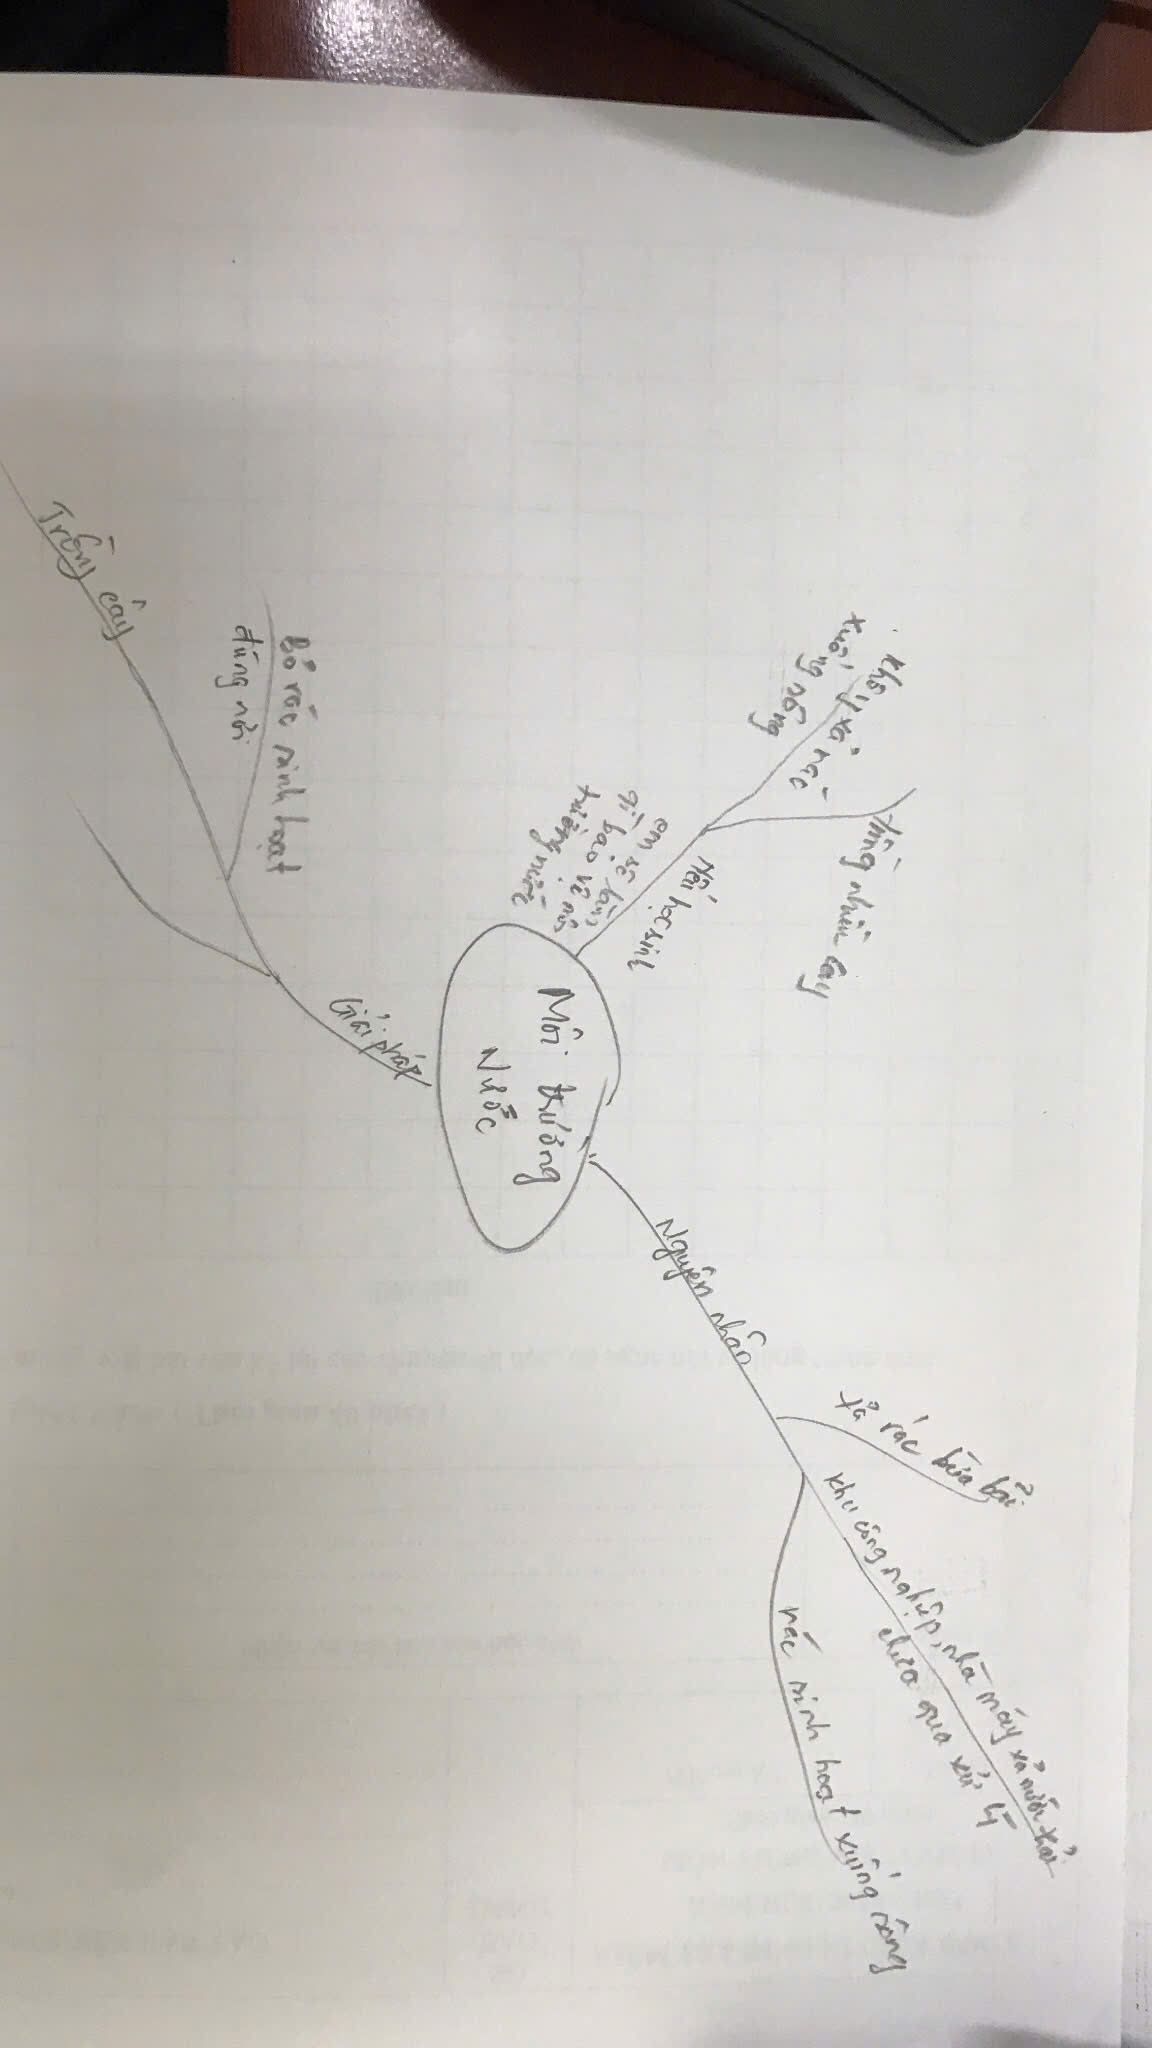 Môi trường
Nước
Nguyên nhân
xả rác bừa bãi
khu công nghiệp, nhà máy xả nước thải
chưa qua xử lý
rác sinh hoạt xuống sông
Nếu học sinh
em sẽ làm
gì bảo vệ môi
trường nước
không xả rác
xuống sông
Giải pháp
Bỏ rác sinh hoạt
đúng nơi
Trồng cây